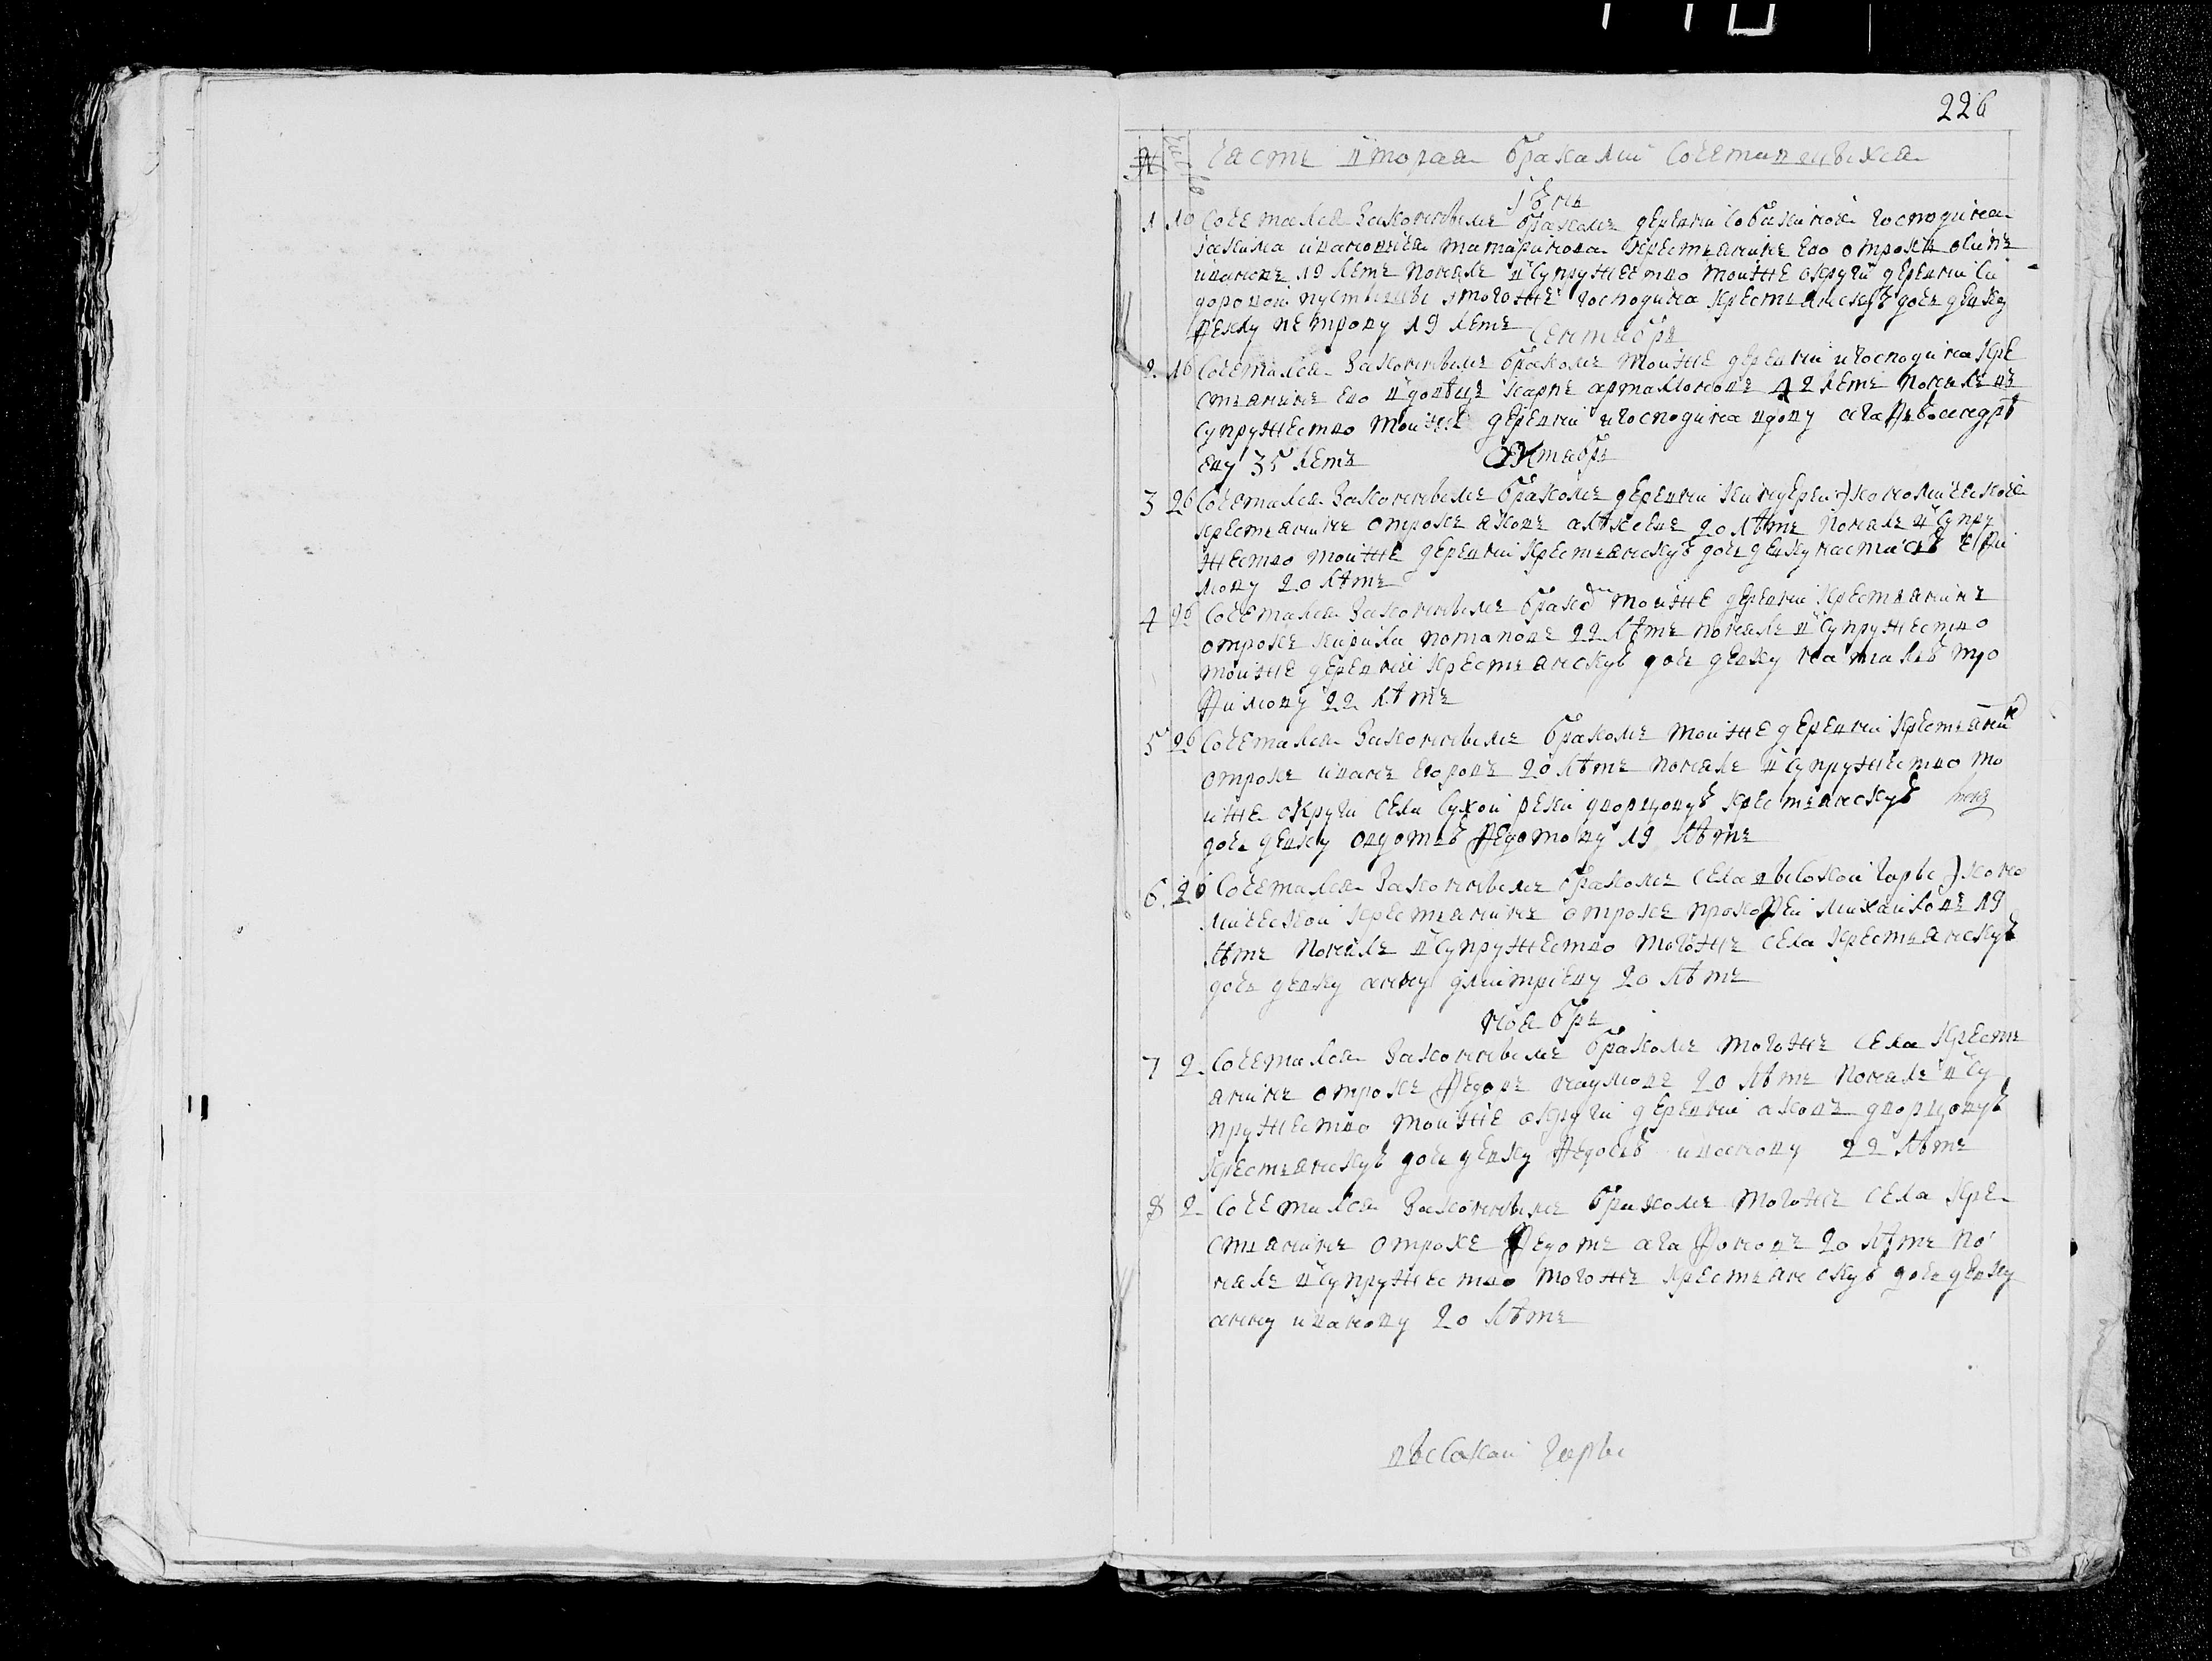 226
№ Число Часть вторая браками сочетавшихся
Июня
1 10 Сочетался законнымъ бракомъ деревни Собакиной господина
Якима Ивановича Татаринова крестьянинъ ево отрокъ Осипъ
Ивановъ 19 летъ понялъ в супружество тоиже округи деревни Си
доровой пустыни тогожъ господина крестьянскую дочь девку
Феклу Петрову 19 летъ
Сентябрь
2 16 Сочетался законнымъ бракомъ тоиже деревни и господина кре
стьянинъ ево вдовецъ Карпъ Артамоновъ 42 летъ понялъ въ
супружество тоиже деревни и господина вдову Агафью Андрѣ
еву 35 летъ
Октябрь
3 26 Сочетался законнымъ бракомъ деревни экономической
крестьянинъ отрокъ Яковъ Алѣксевъ 20 лѣтъ понялъ в супру
жество тоиже деревни крестьянскую дочь девку Настасью Ефи
мову 20 лѣтъ
4 26 Сочетался законнымъ бракомъ тоиже деревни крестьянинъ
отрокъ Кирила Потаповъ 22 лѣтъ понялъ в супружество
тоиже деревни крестьянскую дочь девку Наталью Тро
фимову 22 лѣтъ
5 26 Сочетался законнымъ бракомъ тоиже деревни крестьянин
отрокъ Иванъ Егоровъ 20 лѣтъ понялъ в супружество то
иже округи села Сухой реки дворцовую крестьянскую
дочь девку Овдотью Федотову 19 лѣтъ
6. 26 Сочетался законнымъ бракомъ села Высокой Горы эконо
мической крестьянинъ отрокъ Прокофеи Михаиловъ 19
лѣтъ понялъ в супружество тогожъ села крестьянскую
дочь девку Анну Дмитриеву 20 лѣтъ
Ноябрь
7 2. Сочетался законнымъ бракомъ тогожъ села кресть
янинъ отрокъ Федоръ Наумовъ 20 лѣтъ понялъ в су
пружество тоиже округи деревни дворцовую
крестьянскую дочь девку Федосью Иванову 22 лѣтъ
8 2. Сочетался законнымъ бракомъ тогожъ села кре
стьянинъ отрокъ Федотъ Агафоновъ 20 лѣтъ по
нялъ в супружество тогожъ крестьянскую дочь девку
Анну Иванову 20 лѣтъ
Высокой Горы